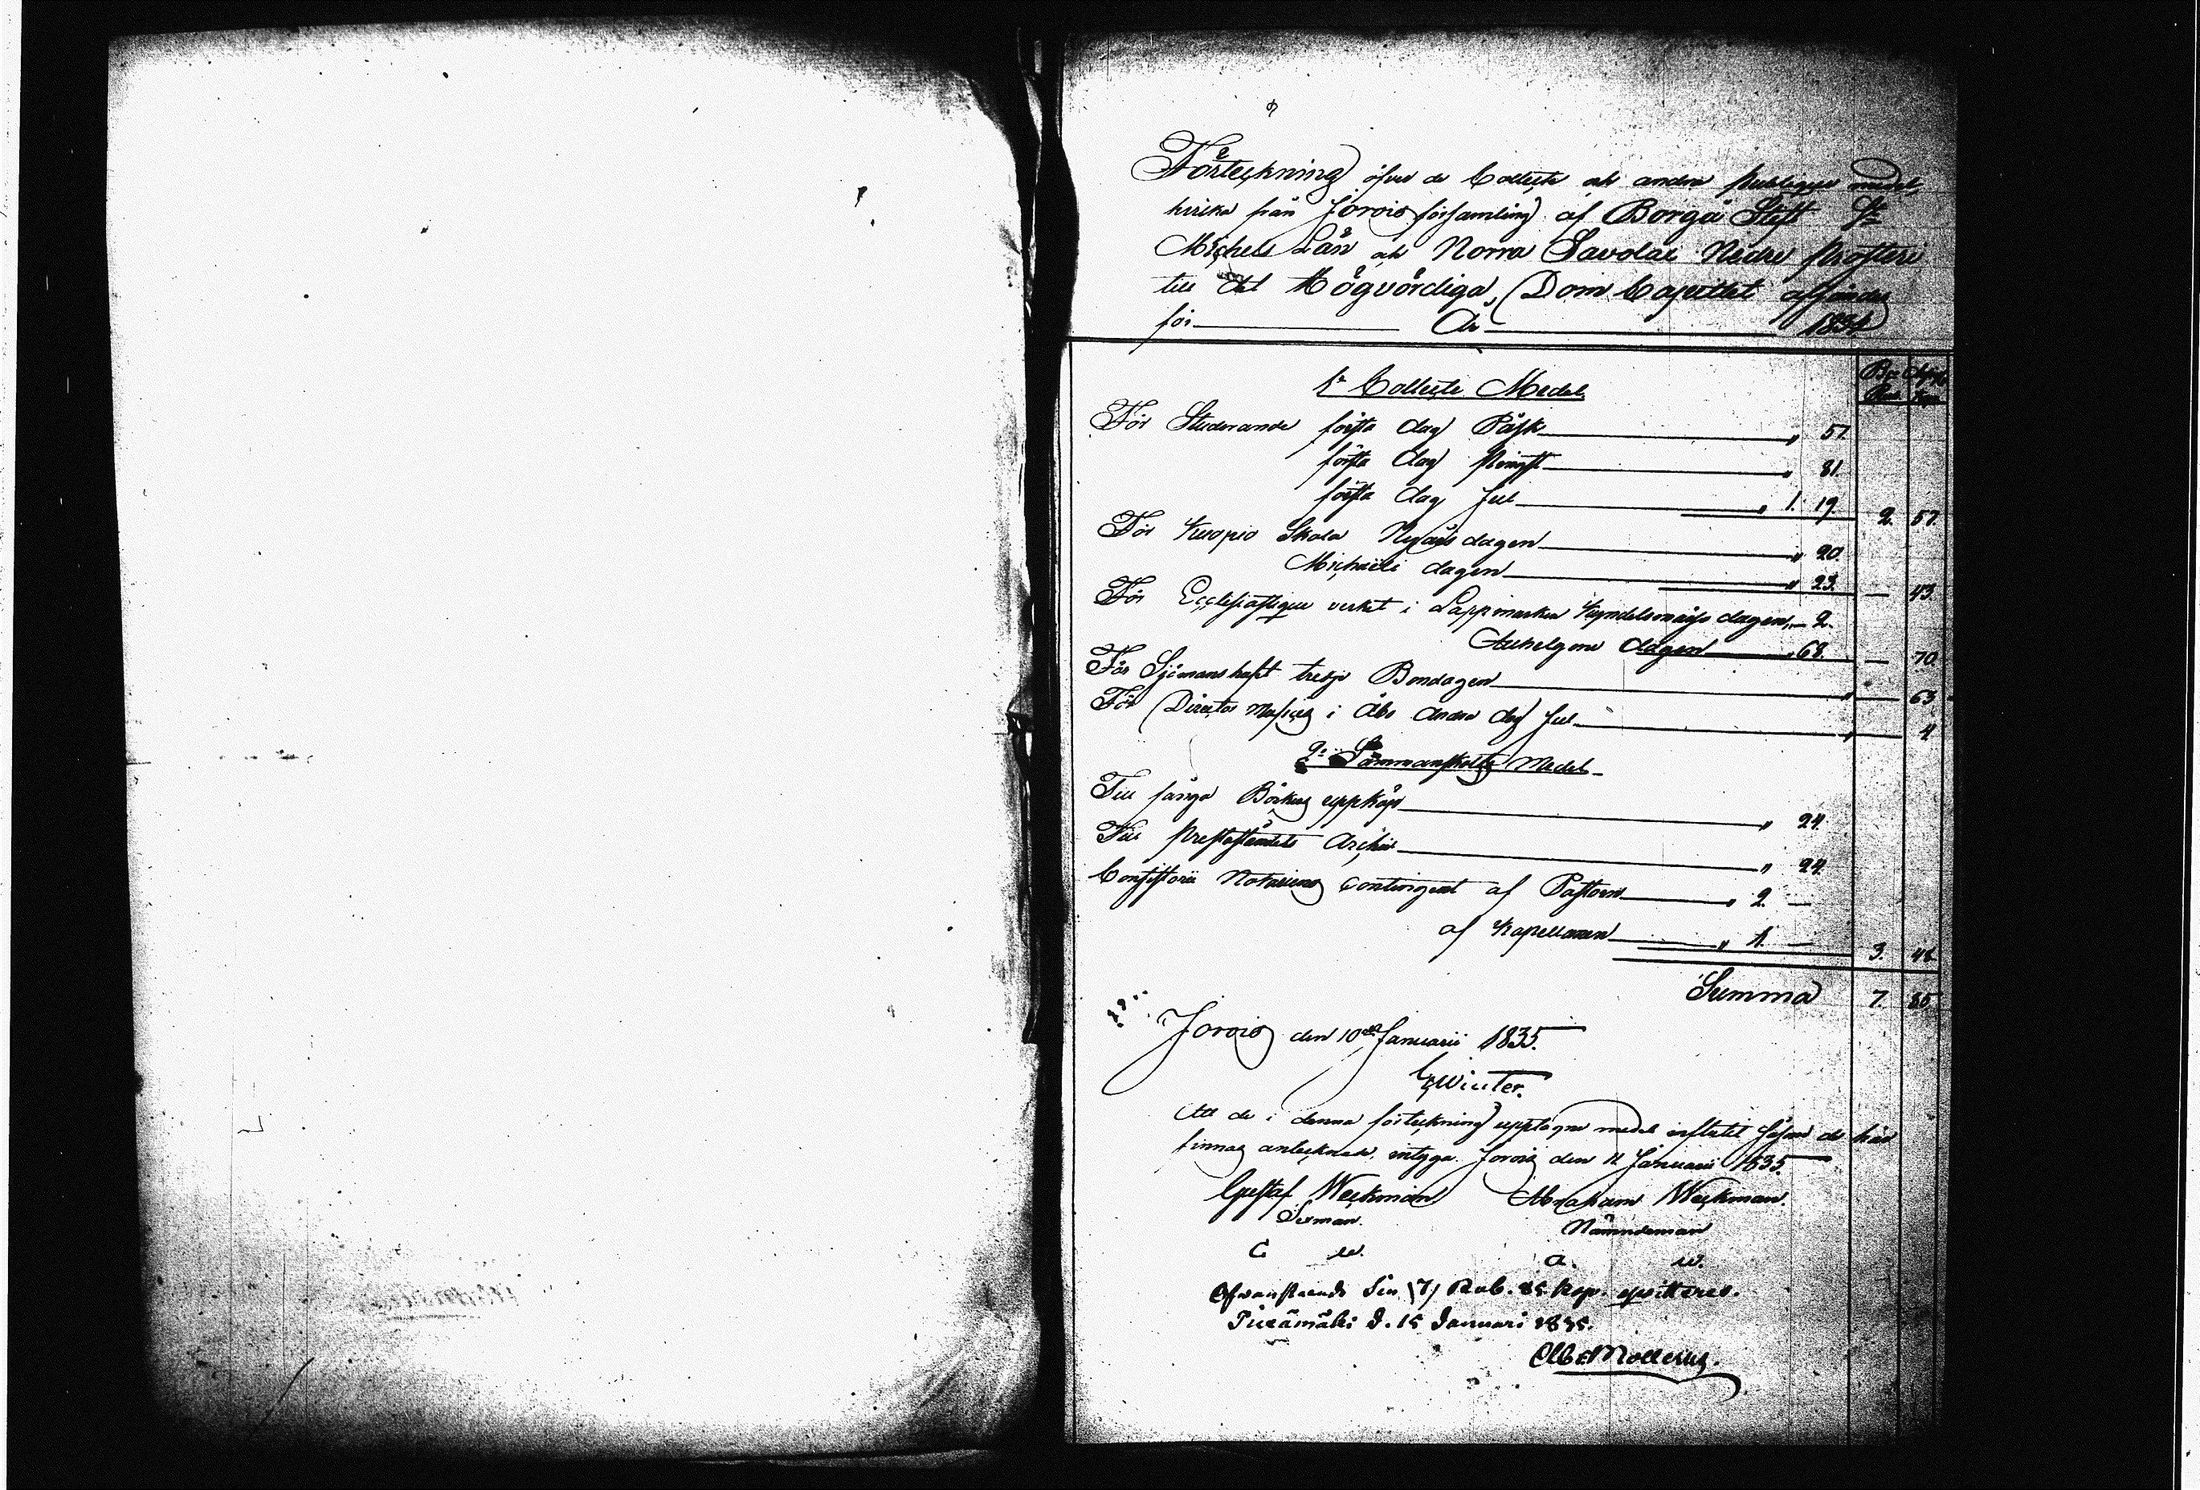 Förteckning öfver de Collecte och andra publique medel
hvilka från Jorois församling af Borgå Stift St
Michels Län och Norra Savolax Nedre Prosteri
till det Högvördiga Dom Capitlet afsändes
för År 1834
1o Collecte Medel
För Studerande första dag Påsk „ 57.
första dag Pingst „ 81.
första dag Jul „ 1. 19. 2. 57.
För Kuopio Skola Nyårsdagen „ 20.
Michaeli dagen „ 23. — 43.
För Ecclesiastique verket i Lappmarken Kyndelsmässo dagen „ 2.
Allhelgona dagen „ 68. — 70.
För Sjömanshuset tredje Bondagen „ — 63.
För Director Musices i Åbo andra dag Jul „ — 4.
2o Sammanskotts Medel
Till fånga Böckers uppköp „ 24.
Till Preståndets Archiv „ 24.
Consistorii Notariens contingent af Pastorn „ 2. —
af Kapellanen „ 1. — 3. 48.
Summa 7. 85.
Jorois den 10de Januarii 1835.
Winter.
Att de i denna förteckning upptagne medel influtit såsom de här
finnas antecknade, intyga. Jorois den 11 Januarii 1835.
Gustaf Weckman Abraham Weckman.
Sexman. Nämndeman
G W. A. W.
Ofvanstående Siu (7) Rub. 85 Kop. qvitteras.
Piexämäki d. 15 Januari 1835.
Mollerus.